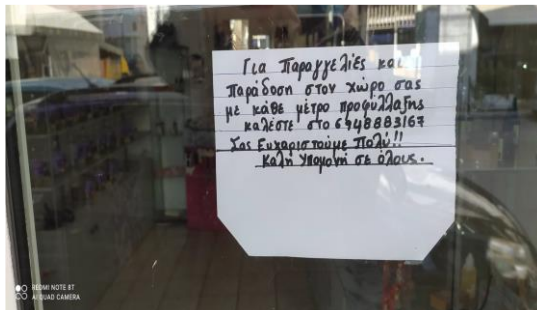 Για Παραγγελίες και
Παράδοση στον χώρο σας
με κάθε μέτρο προφύλλαξης
καλέστε στο 6948883167
Σας Ευχαριστούμε Πολύ!!
Καλή Υπομονή σε όλους.
REDMI NOTE 8T
AI QUAD CAMERA